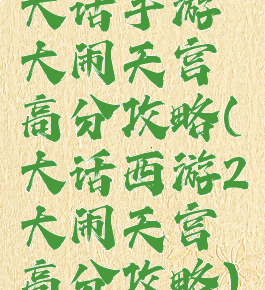 大话手游
大闹天宫
高分攻略(
大话西游2
大闹天宫
高分攻略)